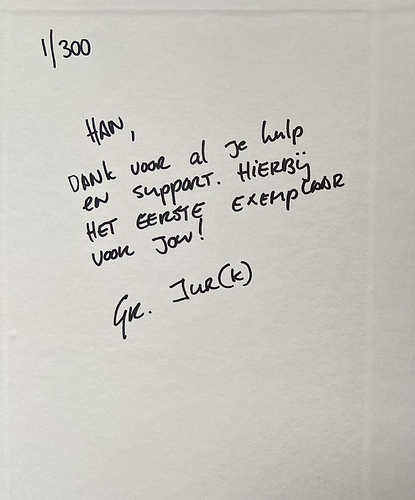 1/300
HAN,
DANK voor al je hulp
en support. HIERBIJ
HET EERSTE EXEMPLAAR
voor jou!
GR. Jur(k)